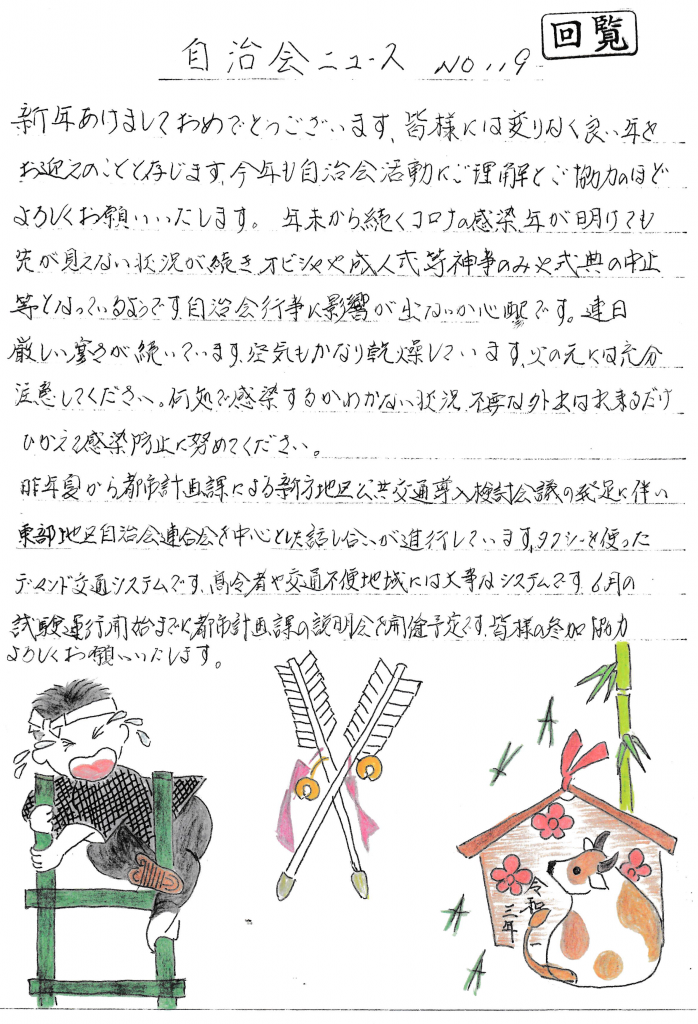 回覧
自治会ニュース NO 119
新年あけましておめでとうございます、皆様には変りなく良い年を
お迎えのことと存じます、今年も自治会活動にご理解とご協力のほど
よろしくお願いいたします。 年末から続くコロナの感染、年が明けても
先が見えない状況が続き、オビシャや成人式等神事のみや式典の中止
等となっているようです、自治会行事に影響が出ないか心配です。連日
厳しい寒さが続いています、空気もかなり乾燥しています、火の元には充分
注意してください。何処で感染するかわからない状況、不要な外出は出来るだけ
ひかえて感染防止に努めてください。
昨年夏から都市計画課による新方地区公共交通導入検討会議の発足に伴い
東部地区自治会連合会を中心とした話し合いが進行しています、タクシーを使った
デマンド交通システムです、高令者や交通不便地域には大事なシステムです、6月の
試験運行開始までに都市計画課の説明会を開催予定です、皆様の参加協力
よろしくお願いいたします。
令和
三年